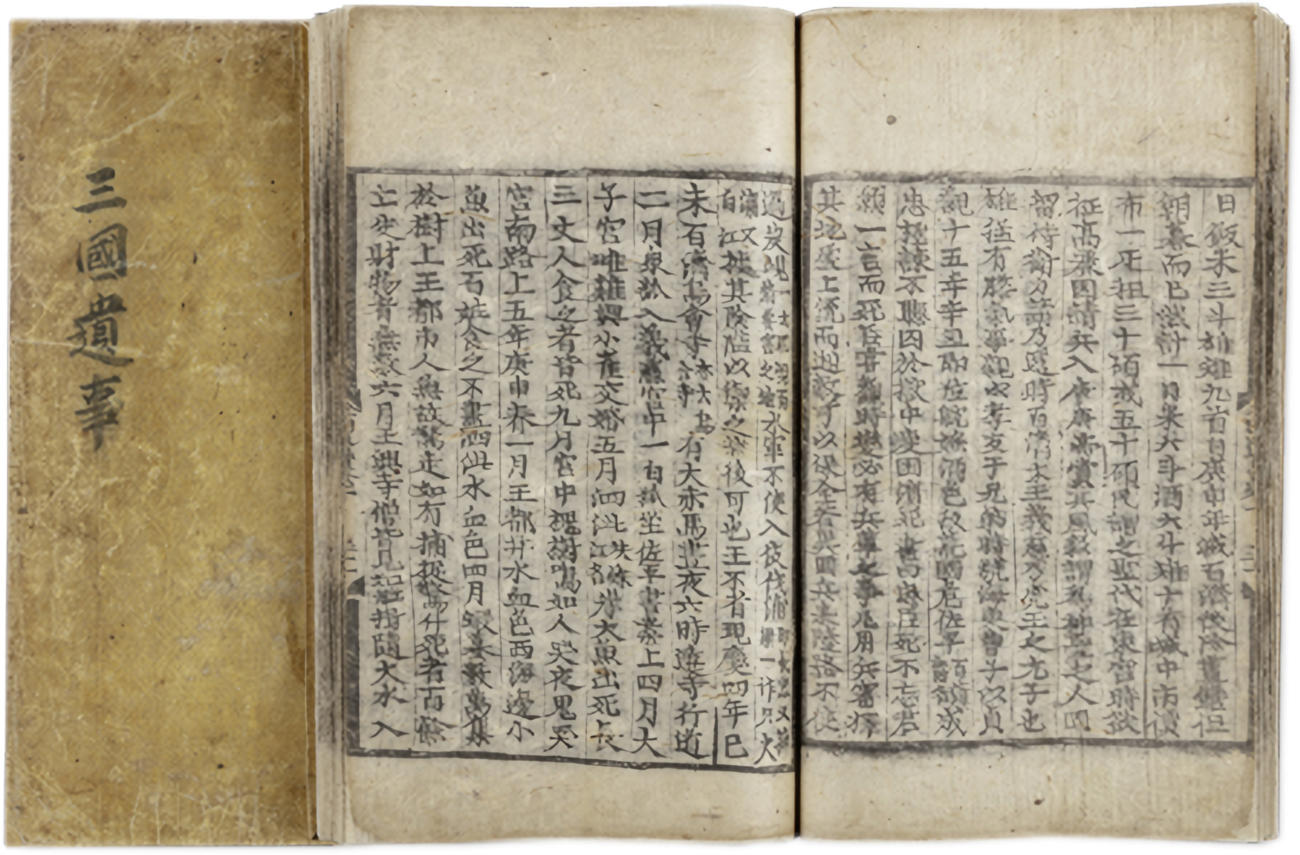 三國遺事
日飯米三斗雄雉九首自庚申年滅百濟後除晝饍但
朝暮而已然計一日米六斗酒六斗雉十首城中市價
布一疋租三十碩或五十碩民謂之聖代在東宮時欲
征高麗因請兵入唐唐帝賞其風彩謂爲神聖之人固
留侍衛力請乃還時百濟末王義慈乃虎王之元子也
雄猛有膽氣事親以孝友于兄弟時號海東曾子以貞
觀十五年辛丑即位耽媱酒色政荒國危佐平百濟爵名成
忠極諫不聽囚於獄中瘦困濱死書曰忠臣死不忘君
願一言而死臣嘗觀時變必有兵革之事凡用兵審擇
其地處上流而迎敵可以保全若異國兵來陸路不使
過炭峴一云沉峴百濟要害之地水軍不使入伎伐浦即長嵓又孫梁一作只火
浦又白江據其險隘以禦之然後可也王不省現慶四年己
未百濟烏會寺亦云烏合寺有大赤馬晝夜六時遶寺行道
二月衆狐入義慈宮中一白狐坐佐平書案上四月太
子宮雌雞與小雀交婚五月泗沘扶餘江名岸大魚出死長
三丈人食之者皆死九月宮中槐樹鳴如人哭夜鬼哭
宮南路上五年庚申春二月王都井水血色西海邊小
魚出死百姓食之不盡泗沘水血色四月蝦蟇數萬集
於樹上王都市人無故驚走如有捕捉驚仆死者百餘
亡失財物者無數六月王興寺僧皆見如舡楫隨大水入